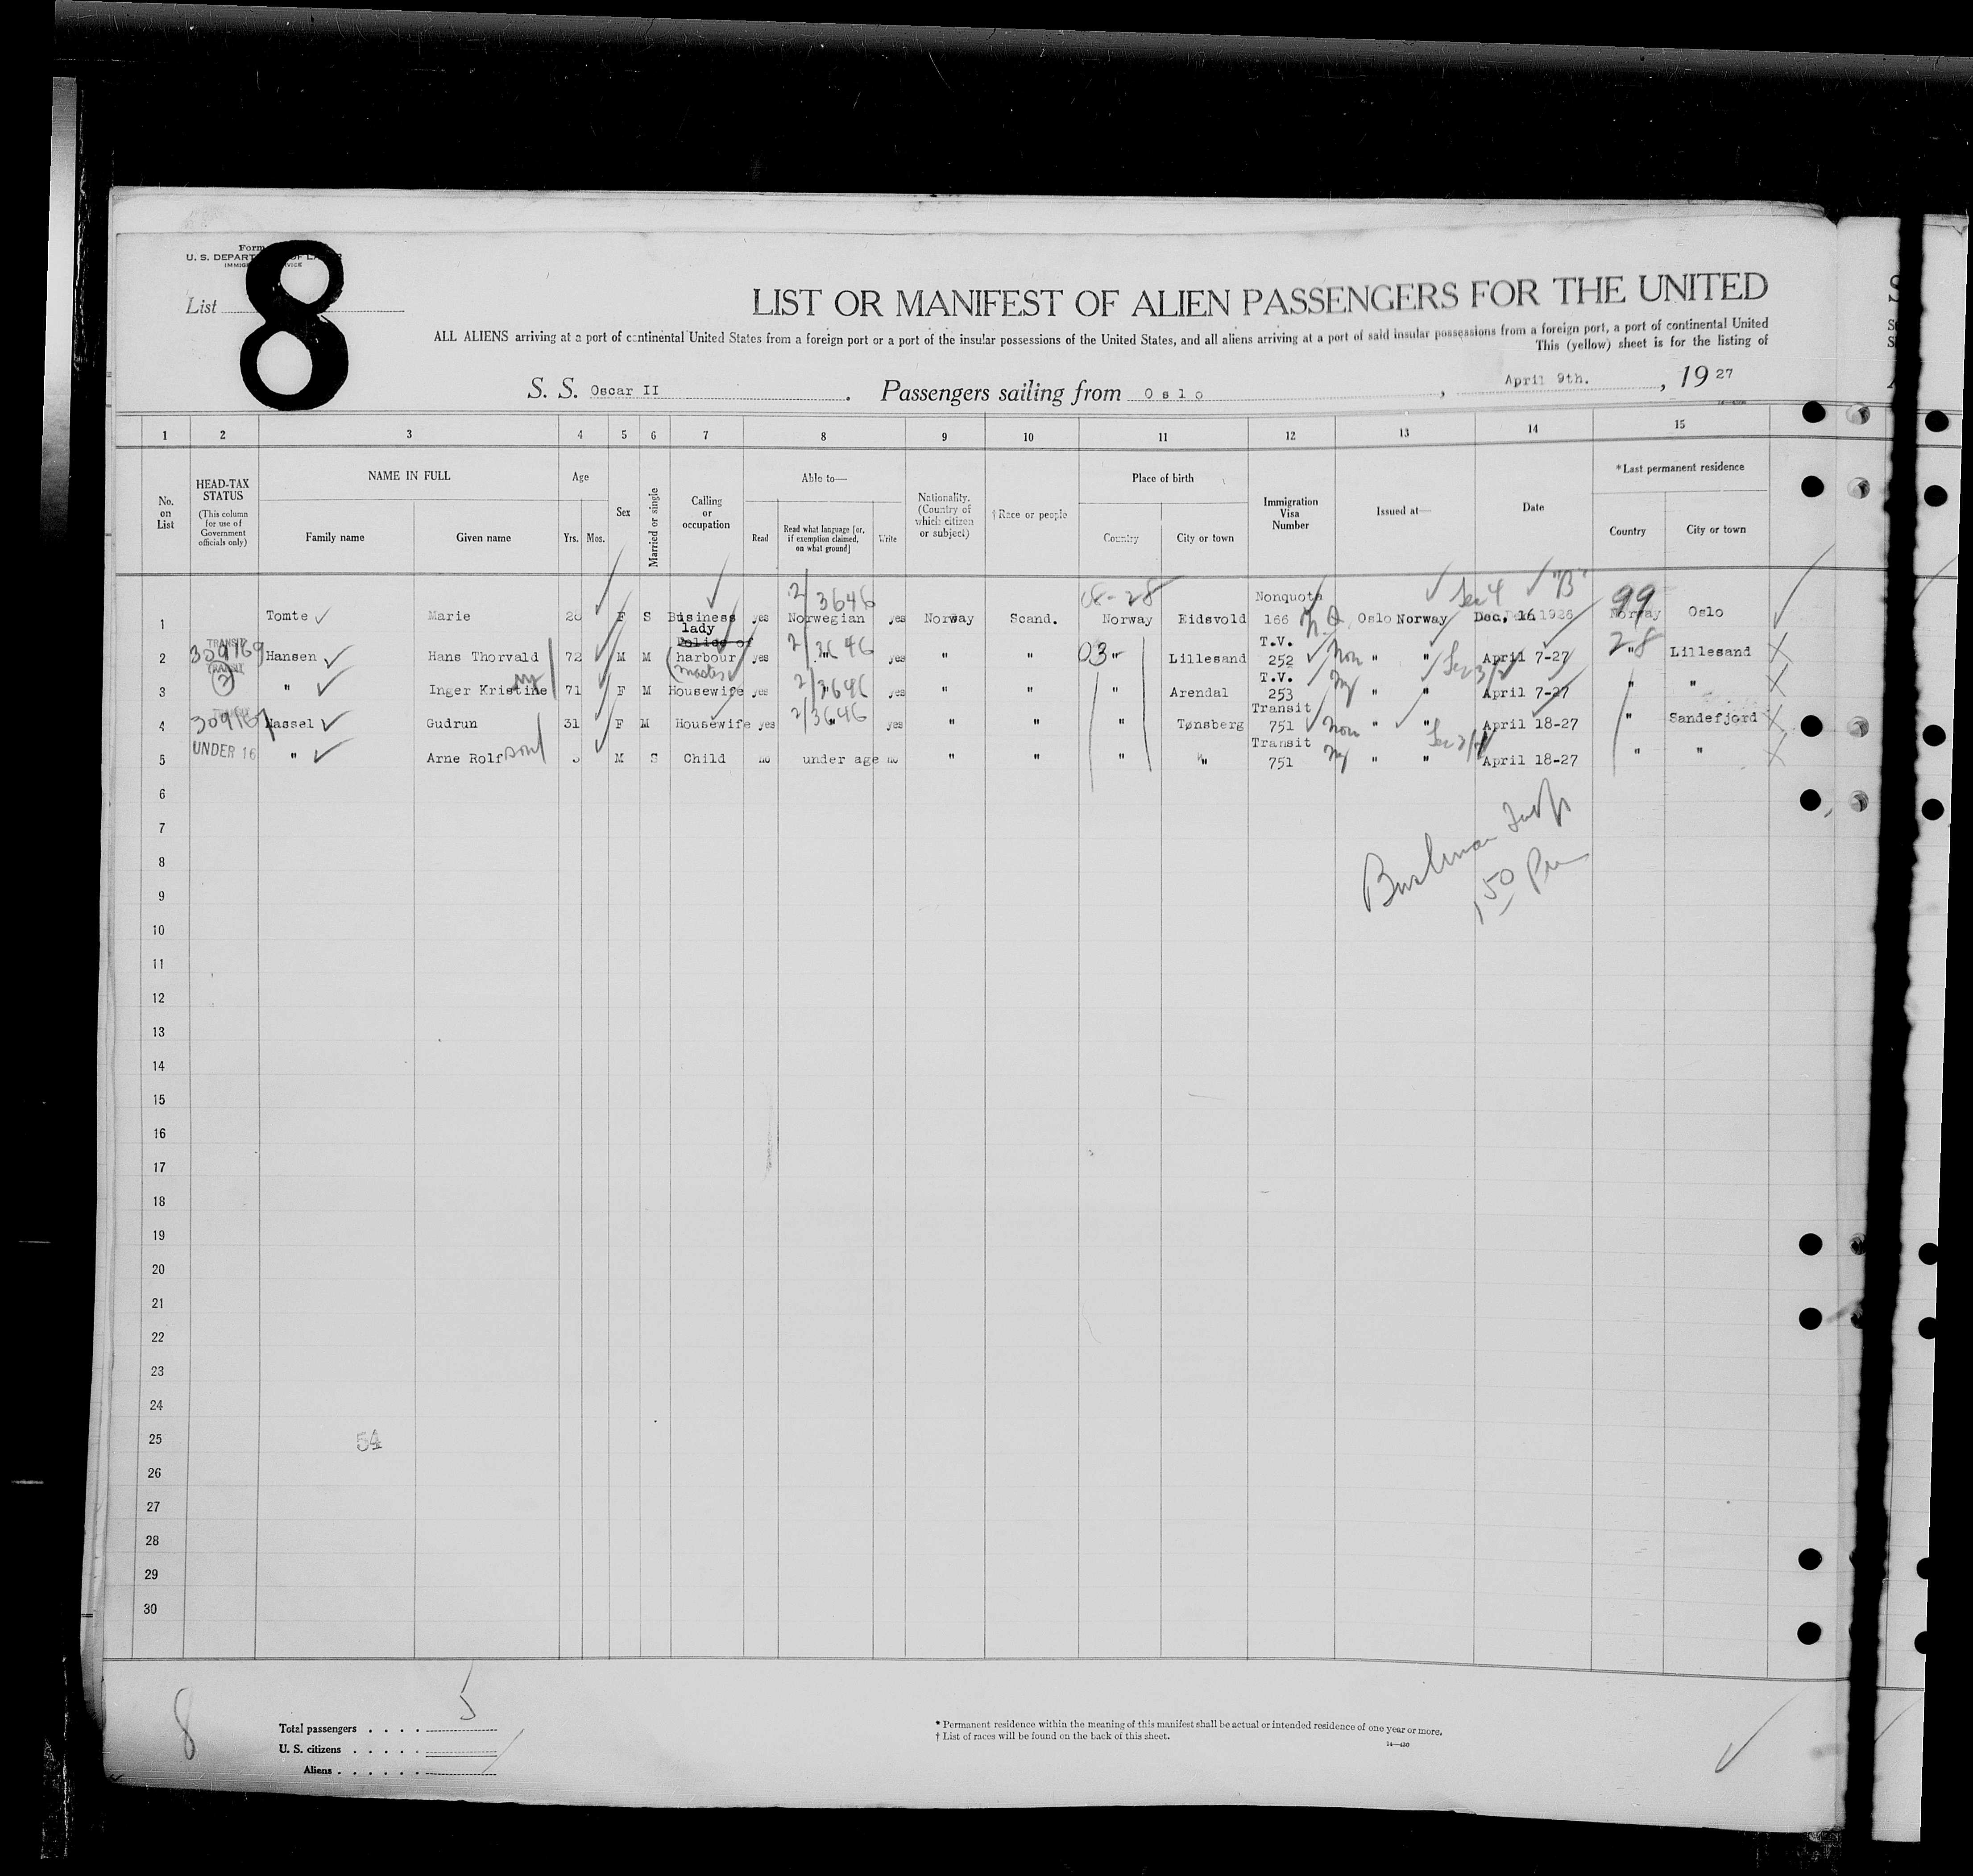 8
Form
U. S. DEPARTMENT OF LABOR
IMMIGRATION SERVICE
List
LIST OR MANIFEST OF ALIEN PASSENGERS FOR THE UNITED
ALL ALIENS arriving at a port of continental United States from a foreign port or a port of the insular possessions of the United States, and all aliens arriving at a port of said insular possessions from a foreign port, a port of continental United
This (yellow) sheet is for the listing of
S. S. Oscar II . Passengers sailing from Oslo , April 9th. , 19 27
1 2 3 4 5 6 7 8 9 10 11 12 13 14 15
No. on List
HEAD-TAX STATUS (This column for use of Government officials only)
NAME IN FULL
Family name Given name
Age
Yrs. Mos.
Sex
Married or single
Calling or occupation
Able to—
Read Read what language [or, if exemption claimed, on what ground] Write
Nationality. (Country of which citizen or subject)
† Race or people
Place of birth
Country City or town
Immigration Visa Number
Issued at—
Date
* Last permanent residence
Country City or town
2/3646 08-28 Nonquota Sec 4 "B" 99
1 Tomte Marie F S Business lady yes Norwegian yes Norway Scand. Norway Eidsvold 166 N.Q. Oslo Norway Dec. 16 1926 Norway Oslo
TRANSIT 309169 2/3646 03 T.V. 28
2 Hansen Hans Thorvald 72 M M Police of harbour (master yes " yes " " " Lillesand 252 Non " " Sec 3/2 April 7-27 " Lillesand
TRANSIT 2/3646 T.V.
3 " Inger Kristine 71 F M Housewife yes " yes " " " Arendal 253 " " April 7-27 " "
TRANSIT 2/3646 Transit
4 Hassel Gudrun 31 F M Housewife yes " yes " " " Tønsberg 751 Non " " April 18-27 " Sandefjord
UNDER 16 Transit
5 " Arne Rolf son M S Child no under age no " " " " 751 " " April 18-27 " "
6
7
8
9
10
11
12
13
14
15
16
17
18
19
20
21
22
23
24
25 54
26
27
28
29
30
1 50 Pm
8
Total passengers . . . . 5
U. S. citizens . . . . .
Aliens . . . . . .
* Permanent residence within the meaning of this manifest shall be actual or intended residence of one year or more.
† List of races will be found on the back of this sheet.
14—430